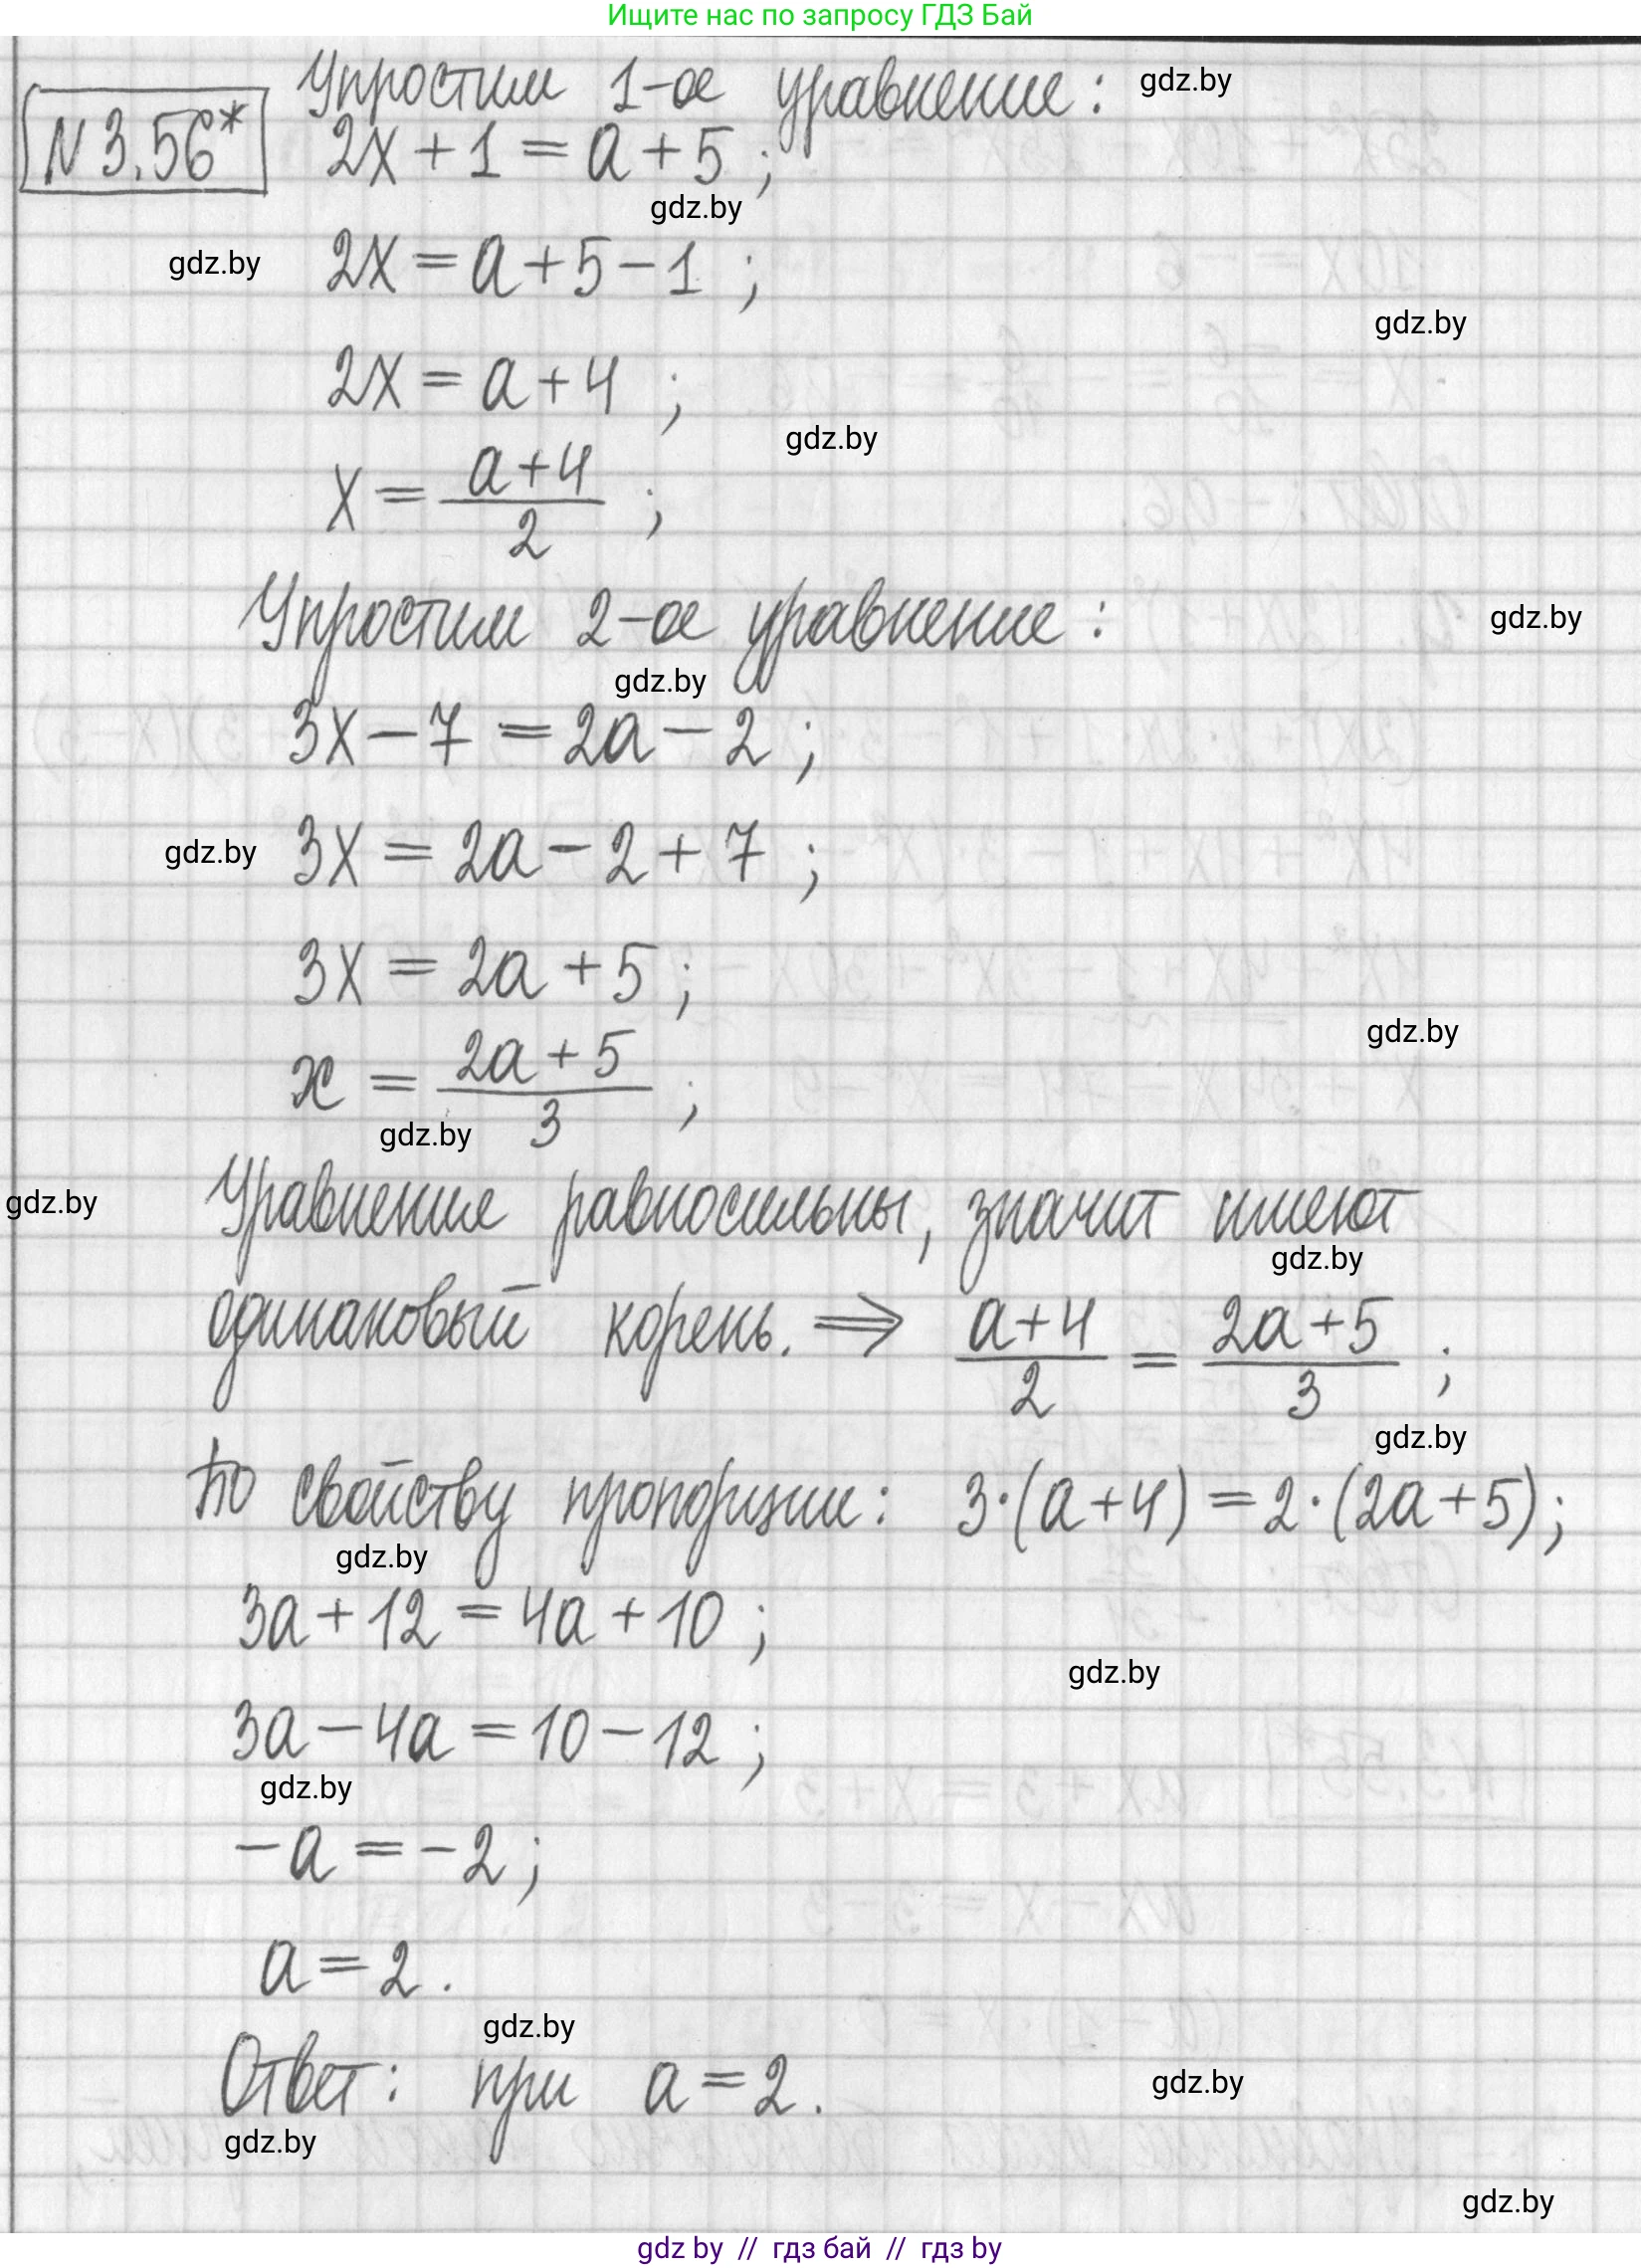 Ищите нас по запросу ГДЗ Бай
Упростим 1-ое уравнение: gdz.by
N 3.56* 2x + 1 = a + 5 ;
gdz.by
gdz.by 2x = a + 5 - 1 ;
gdz.by
2x = a + 4 ;
gdz.by
x = \frac{a+4}{2} ;
Упростим 2-ое уравнение: gdz.by
gdz.by
3x - 7 = 2a - 2 ;
gdz.by 3x = 2a - 2 + 7 ;
3x = 2a + 5 ;
gdz.by
x = \frac{2a+5}{3} ;
gdz.by
gdz.by Уравнения равносильны, значит имеют
gdz.by
одинаковый корень. ⇒ \frac{a+4}{2} = \frac{2a+5}{3} ;
gdz.by
По свойству пропорции: 3·(a+4) = 2·(2a+5);
gdz.by
3a + 12 = 4a + 10 ;
gdz.by
3a - 4a = 10 - 12 ;
gdz.by
-a = -2 ;
a = 2 .
gdz.by
Ответ: при a = 2. gdz.by
gdz.by
gdz.by
gdz by // гдз бай // гдз by